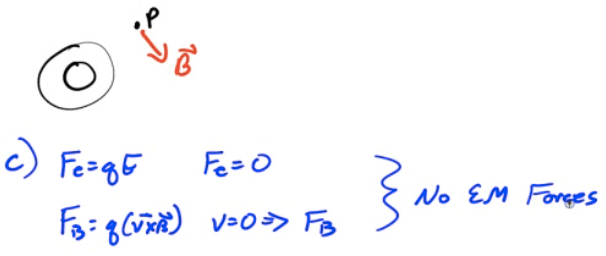 .P
B⃗
c) Fe=qE Fe=0
FB=q(v⃗xB⃗) v=0=> FB
} No EM Forces